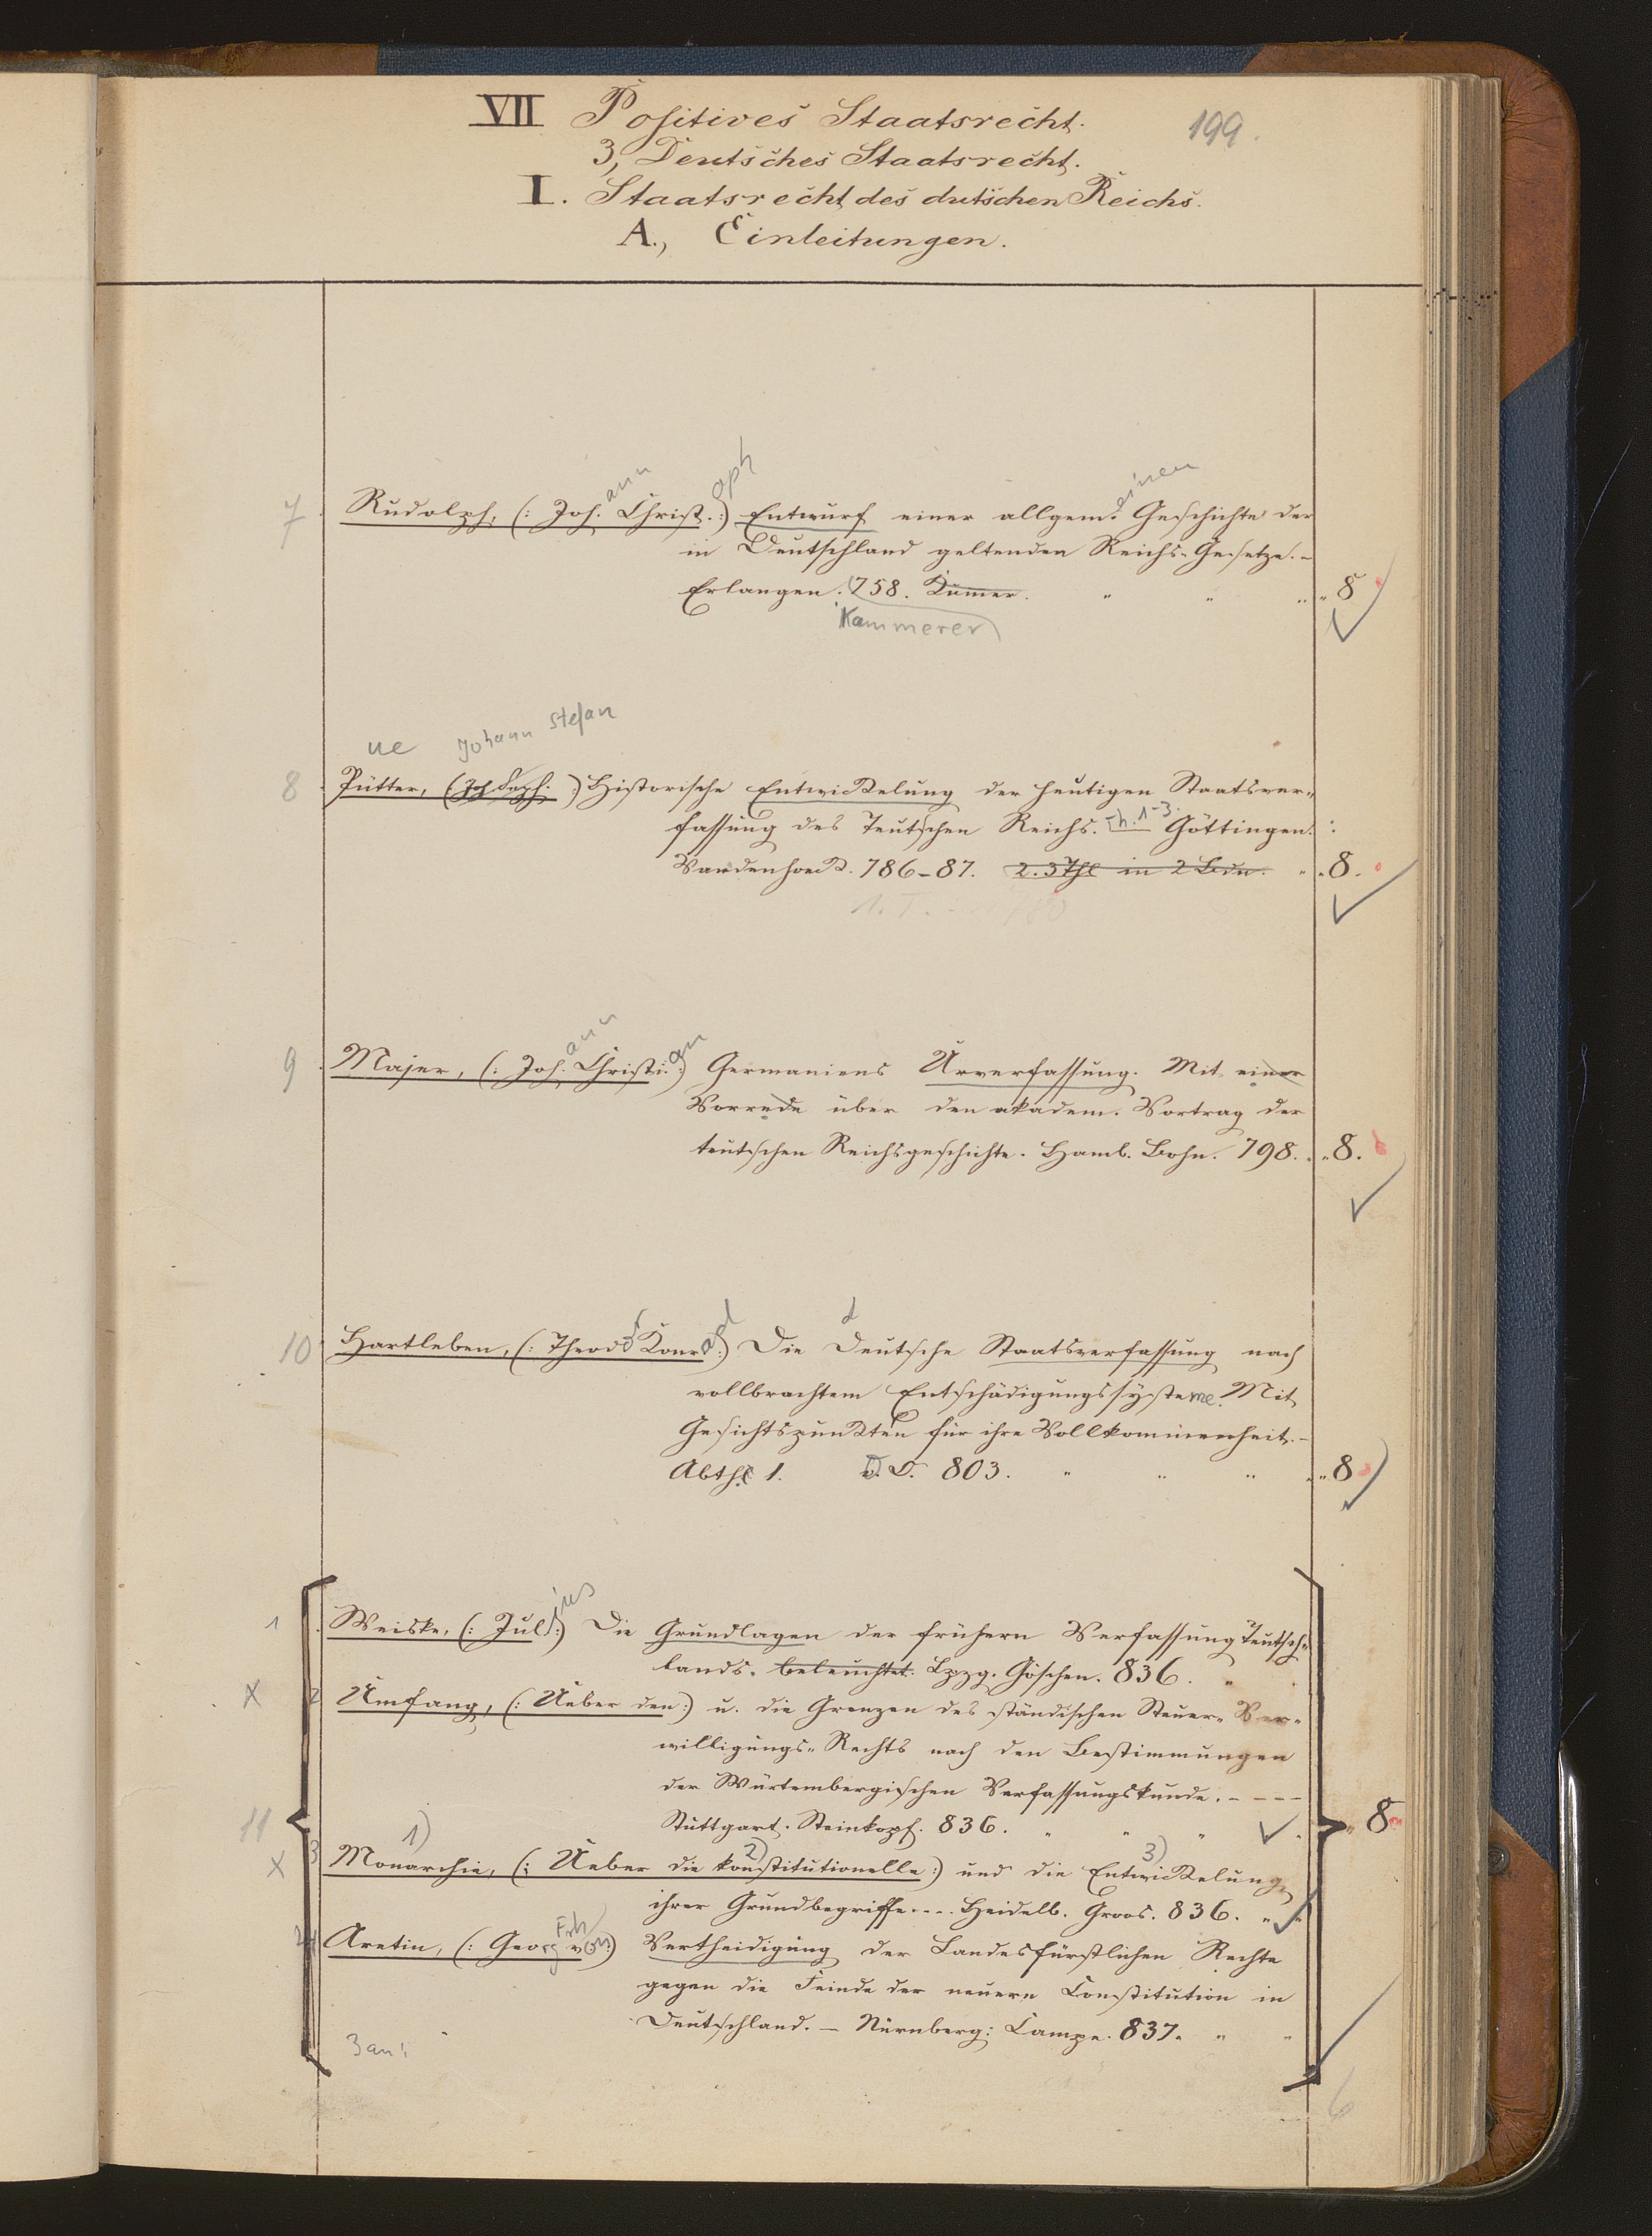 VII Positives Staatsrecht.
199.
3, Deutsches Staatsrecht.
I. Staatsrecht des dutschen Reichs.
A., Einleitungen.
ann oph einen
7 Rudolph, (: Joh. Christ. :) Entwurf einer allgem. Geschichte der
in Deutschland geltenden Reichs-Gesetze. –
Erlangen. 758. Kümer. " " " " 8
Kammerer
ne Johann Stefan
8 Pütter, (Joh Steph. :) Historische Entwickelung der heutigen Staatsver„
fassung des Teutschen Reichs. Th. 1-3. Göttingen. :
Vandenhoeck. 786–87. 2. 3 Thl in 2 Bdn. " " 8.
ann an
9 Majer, (: Joh. Christi: :) Germaniens Urverfassung. Mit einer
Vorrede über den akadem. Vortrag der
teutschen Reichsgeschichte. Hamb. Bohn. 798. " 8.
d
10 Hartleben, (: Theod Konrad :) Die Deutsche Staatsverfassung nach
vollbrachtem Entschädigungssysteme. Mit
Gesichtspunkten für ihre Vollkommenheit. –
Abthl 1. O. 803. " " " " " 8
jus
1 Weiske, (: Jul :) Die Grundlagen der frühern Verfassung Teutsch„
lands. beleuchtet. Lpzg. Göschen. 836. "
X 2 Umfang, (: Ueber den :) u. die Grenzen des ständischen Steuer„ Ver„
willigungs„ Rechts nach den Bestimmungen
der Würtembergischen Verfassungskunde. – – – –
Stuttgart. Steinkopf. 836. " " "
11 " 8
1) 2) 3)
X 3 Monarchie, (: Ueber die konstitutionelle :) und die Entwickelung
ihrer Grundbegriffe.... Heidelb. Groos. 836. " "
Frh
4 Aretin, (: Georg von :) Vertheidigung der Landesfürstlichen Rechte
gegen die Feinde der neuern Constitution in
Deutschland. – Nürnberg: Campe. 837. " "
3 an:
6